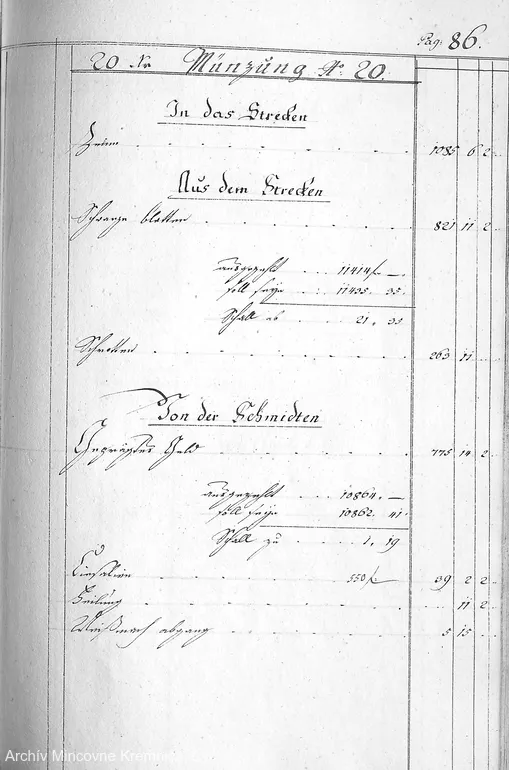 Pag: 86.
20 Xr Münzung No. 20.
In das Strecken
Zeinn 1085 6 2
Aus dem Strecken
Schwarze blatten 821 11 2
ausgezählt 11414f —
soll seyn 11435. 35.
Schall ab 21. 35
Schrotten 263 11
Von der Schmidten
Gepräg̈tes Geld 775 14 2
ausgezählt 10864. —
soll seyn 10862. 41
Schall zu 1. 19
Cisalien 550f 39 2 2
Feilung 11 2
Weißmach abgang 5 15
Archív Mincovne Kremnica